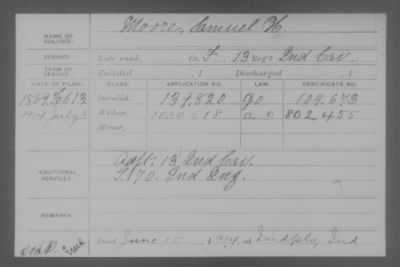 NAME OF SOLDIER: Moore, Samuel H.
SERVICE: Late rank, Co. F, 13 Reg't Ind Cav.
TERM OF SERVICE: Enlisted , 1 Discharged , 1
DATE OF FILING. CLASS. APPLICATION NO. LAW. CERTIFICATE NO.
1869 Feb 13 Invalid, 139,820 109.673
1914 July 3 Widow, 1030518 802,455
Minor,
ADDITIONAL SERVICES: Adjt. 13 Ind Cav.
70. Ind
REMARKS:
Died June 15, 1914, at Indpls, Ind